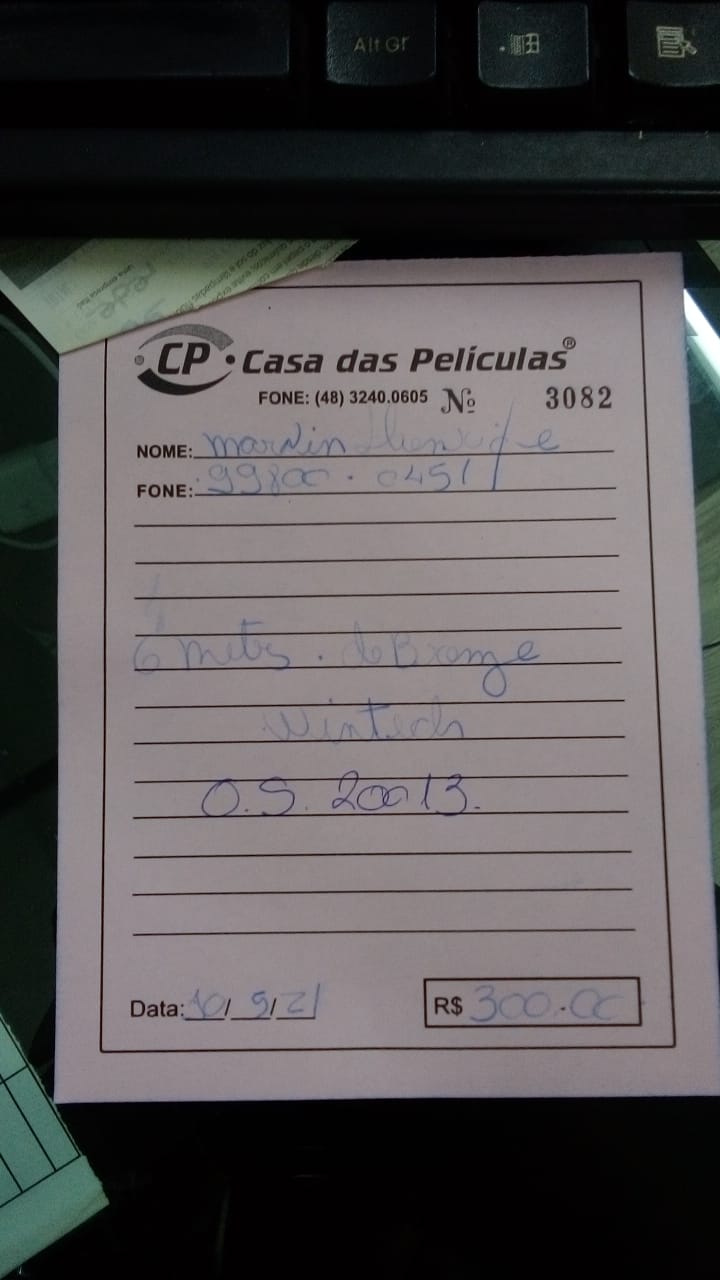 Alt Gr
uma empresa
rede
CP Casa das Películas®
FONE: (48) 3240.0605 Nº 3082
NOME: marvin Henrique
FONE: 99800.0451
6 metros . de Bronze
Wintech
O.S. 20013.
Data: 10/ 9/ 21 R$ 300.00